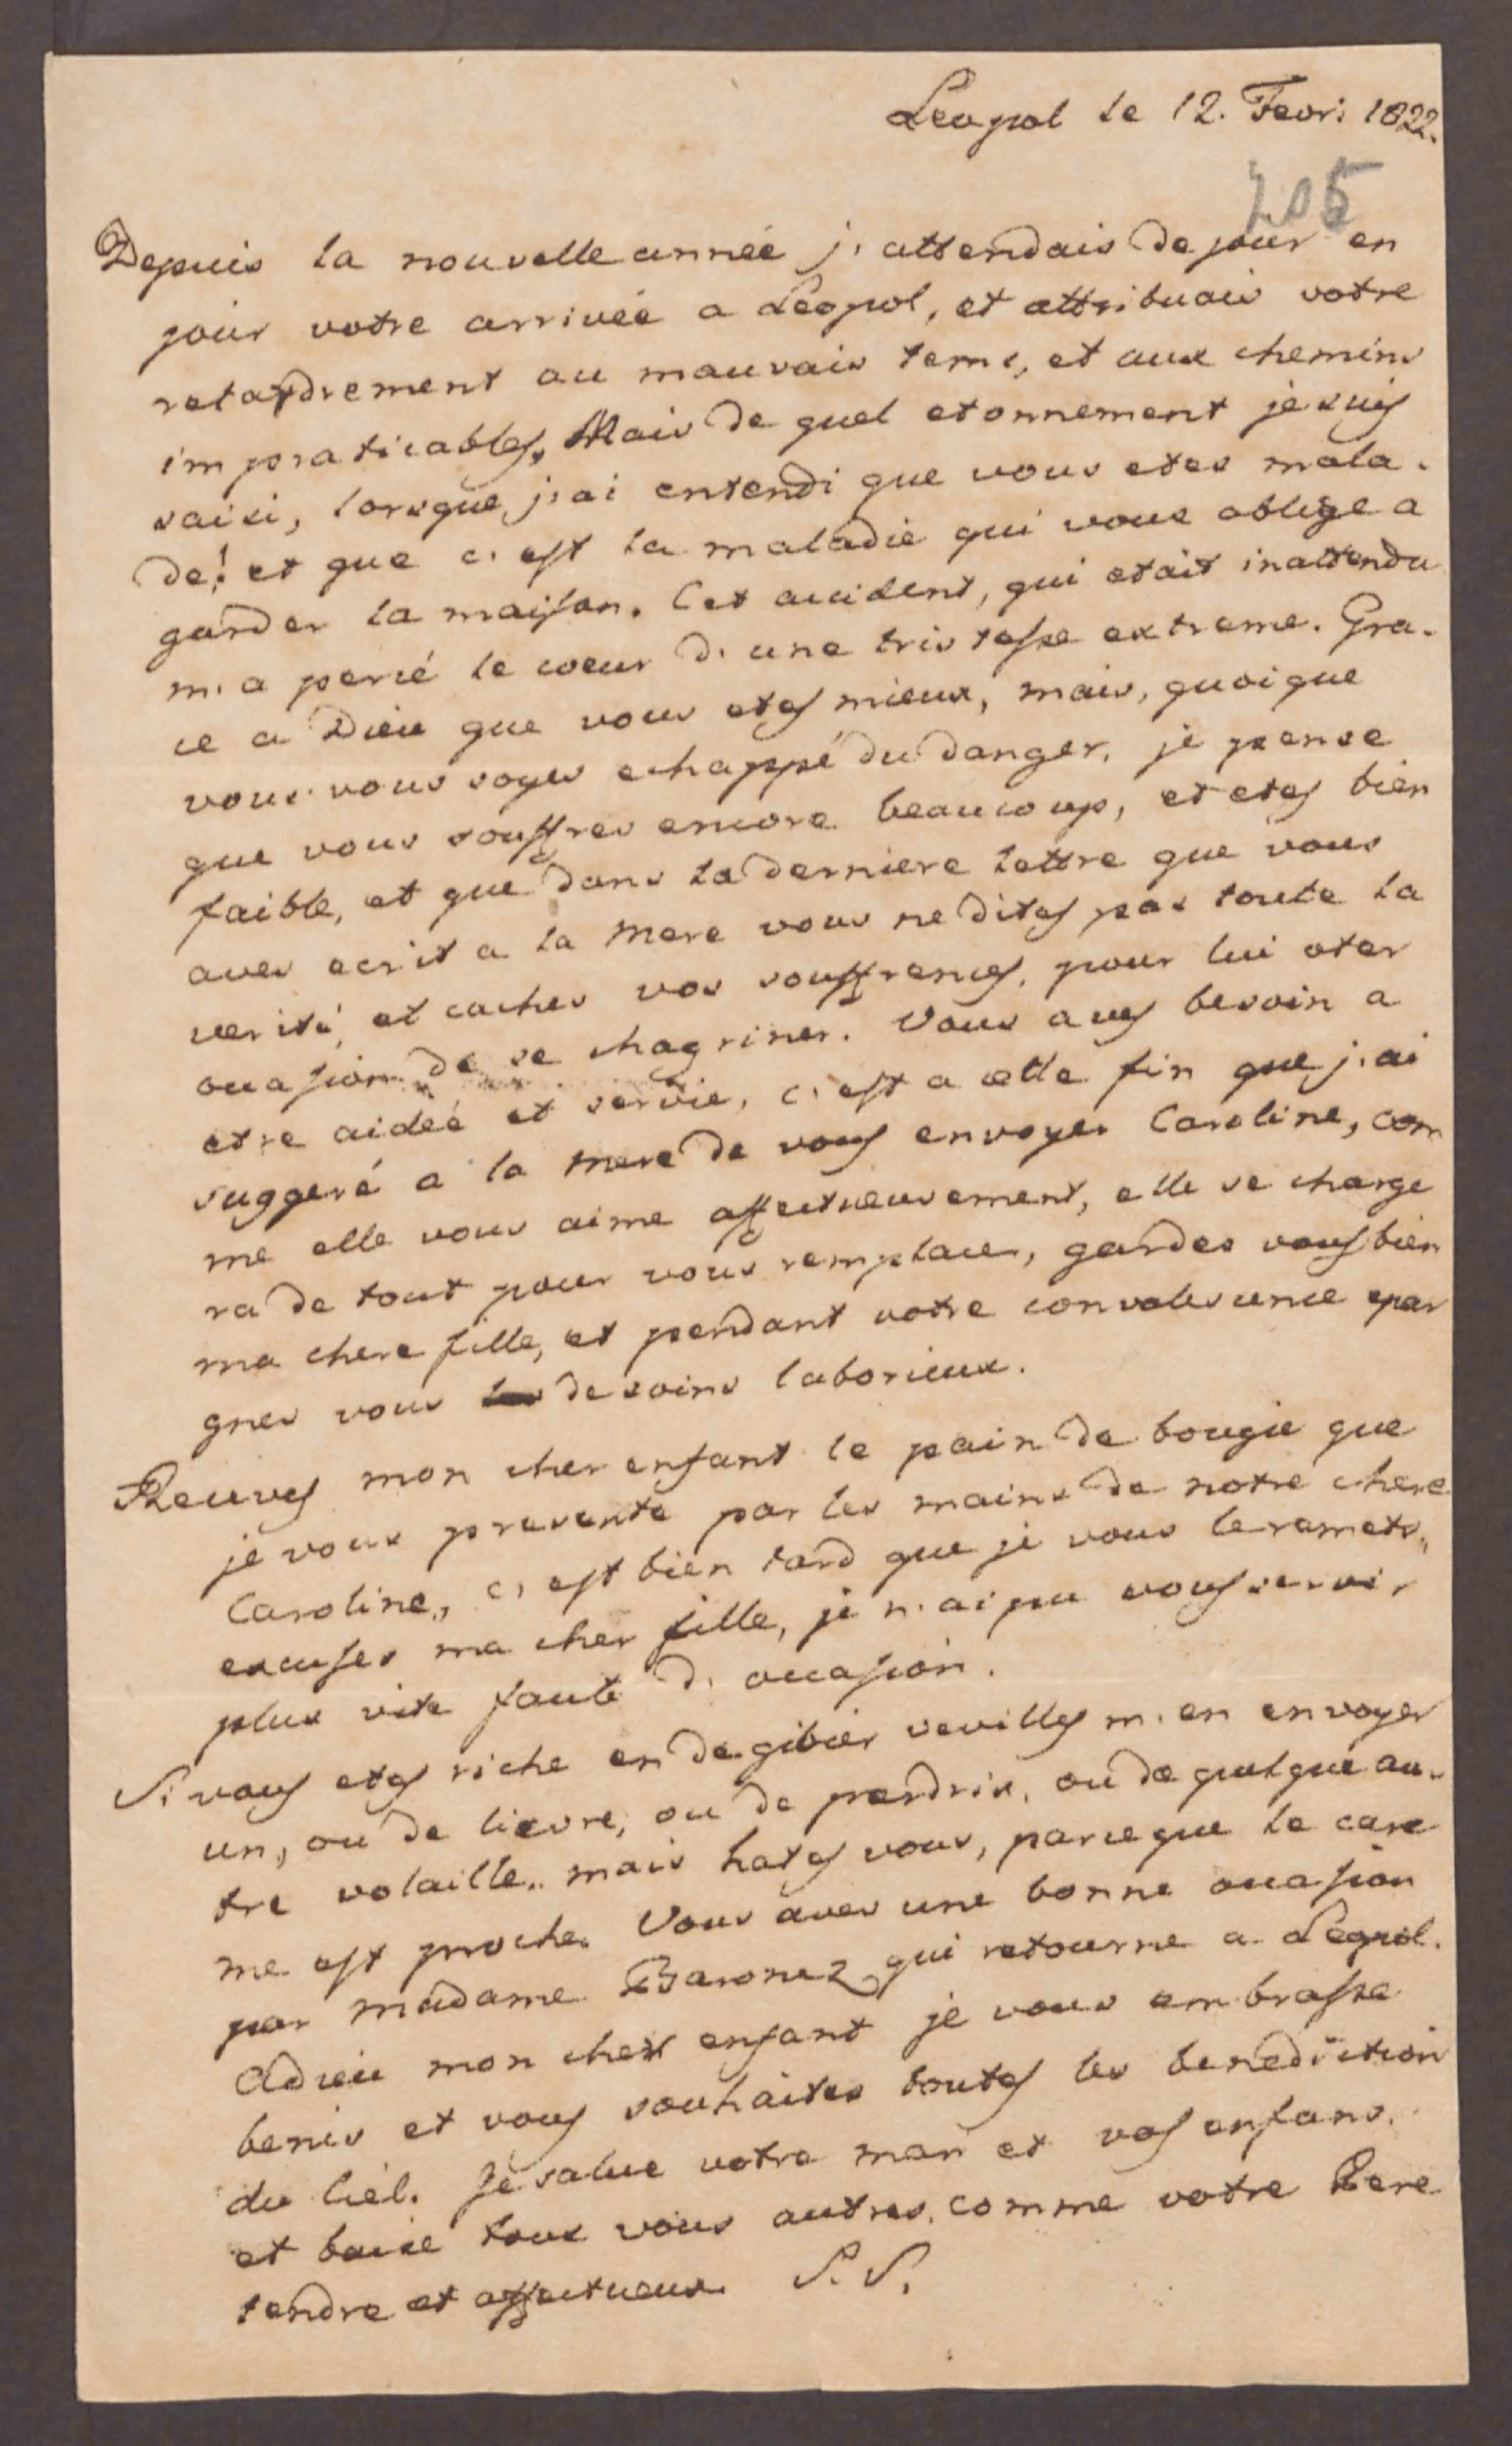 Leopol le 12. Fevr: 1822.
205
Depuis la nouvelle année j'attendais de jour en
jour votre arrivée a Leopol, et attribuais votre
retardrement au mauvais tems, et aux chemins
impraticables, Mais de quel etonnement je suis
saisi, lorsque j'ai entendi que vous etes mala-
de! et que c'est la maladie qui vous oblige a
garder la maison. Cet accident, qui etait inattendu
m'a percé le coeur d'une tristesse extreme. Gra-
ce a Dieu que vous etes mieux, mais, quoique
vous vous soyes echappé du danger, je pense
que vous souffres encore beaucoup, et etes bien
faible, et que dans la derniere lettre que vous
aves ecrit a la Mere vous ne dites pas toute la
verité, et caches vos souffrences, pour lui oter
occasion de se chagriner. Vous aves besoin a
etre aideé et servie, c'est a cette fin que j'ai
suggeré a la Mere de vous envoyer Caroline, com
me elle vous aime affectueusement, elle se charge
ra de tout pour vous remplacer, gardes vous bien
ma chere fille, et pendant votre convalescence epar
gnes vous de soins laborieux.
Recuves mon cher enfant le pain de bougie que
je vous presente par les mains de notre chere
Caroline, c'est bien tard que je vous le remets,
excuses ma cher fille, je n'ai pu vous servir
plus vite faute d'occasion.
Si vous etes riche en de gibier veuilles m'en envoyer
un, ou de lievre, ou de perdrix, ou de quelque au-
tre volaille, mais hates vous, parceque le care
me est proche. Vous aves une bonne occasion
par madame Baronez qui retourne a Leopol.
Adieu mon cher enfant je vous embrasse
benis et vous souhaites toutes les benediction
du Ciel. Je salue votre mari et vos enfans,
et baise tous vous autres, comme votre Pere
tendre et affectueux S. S.